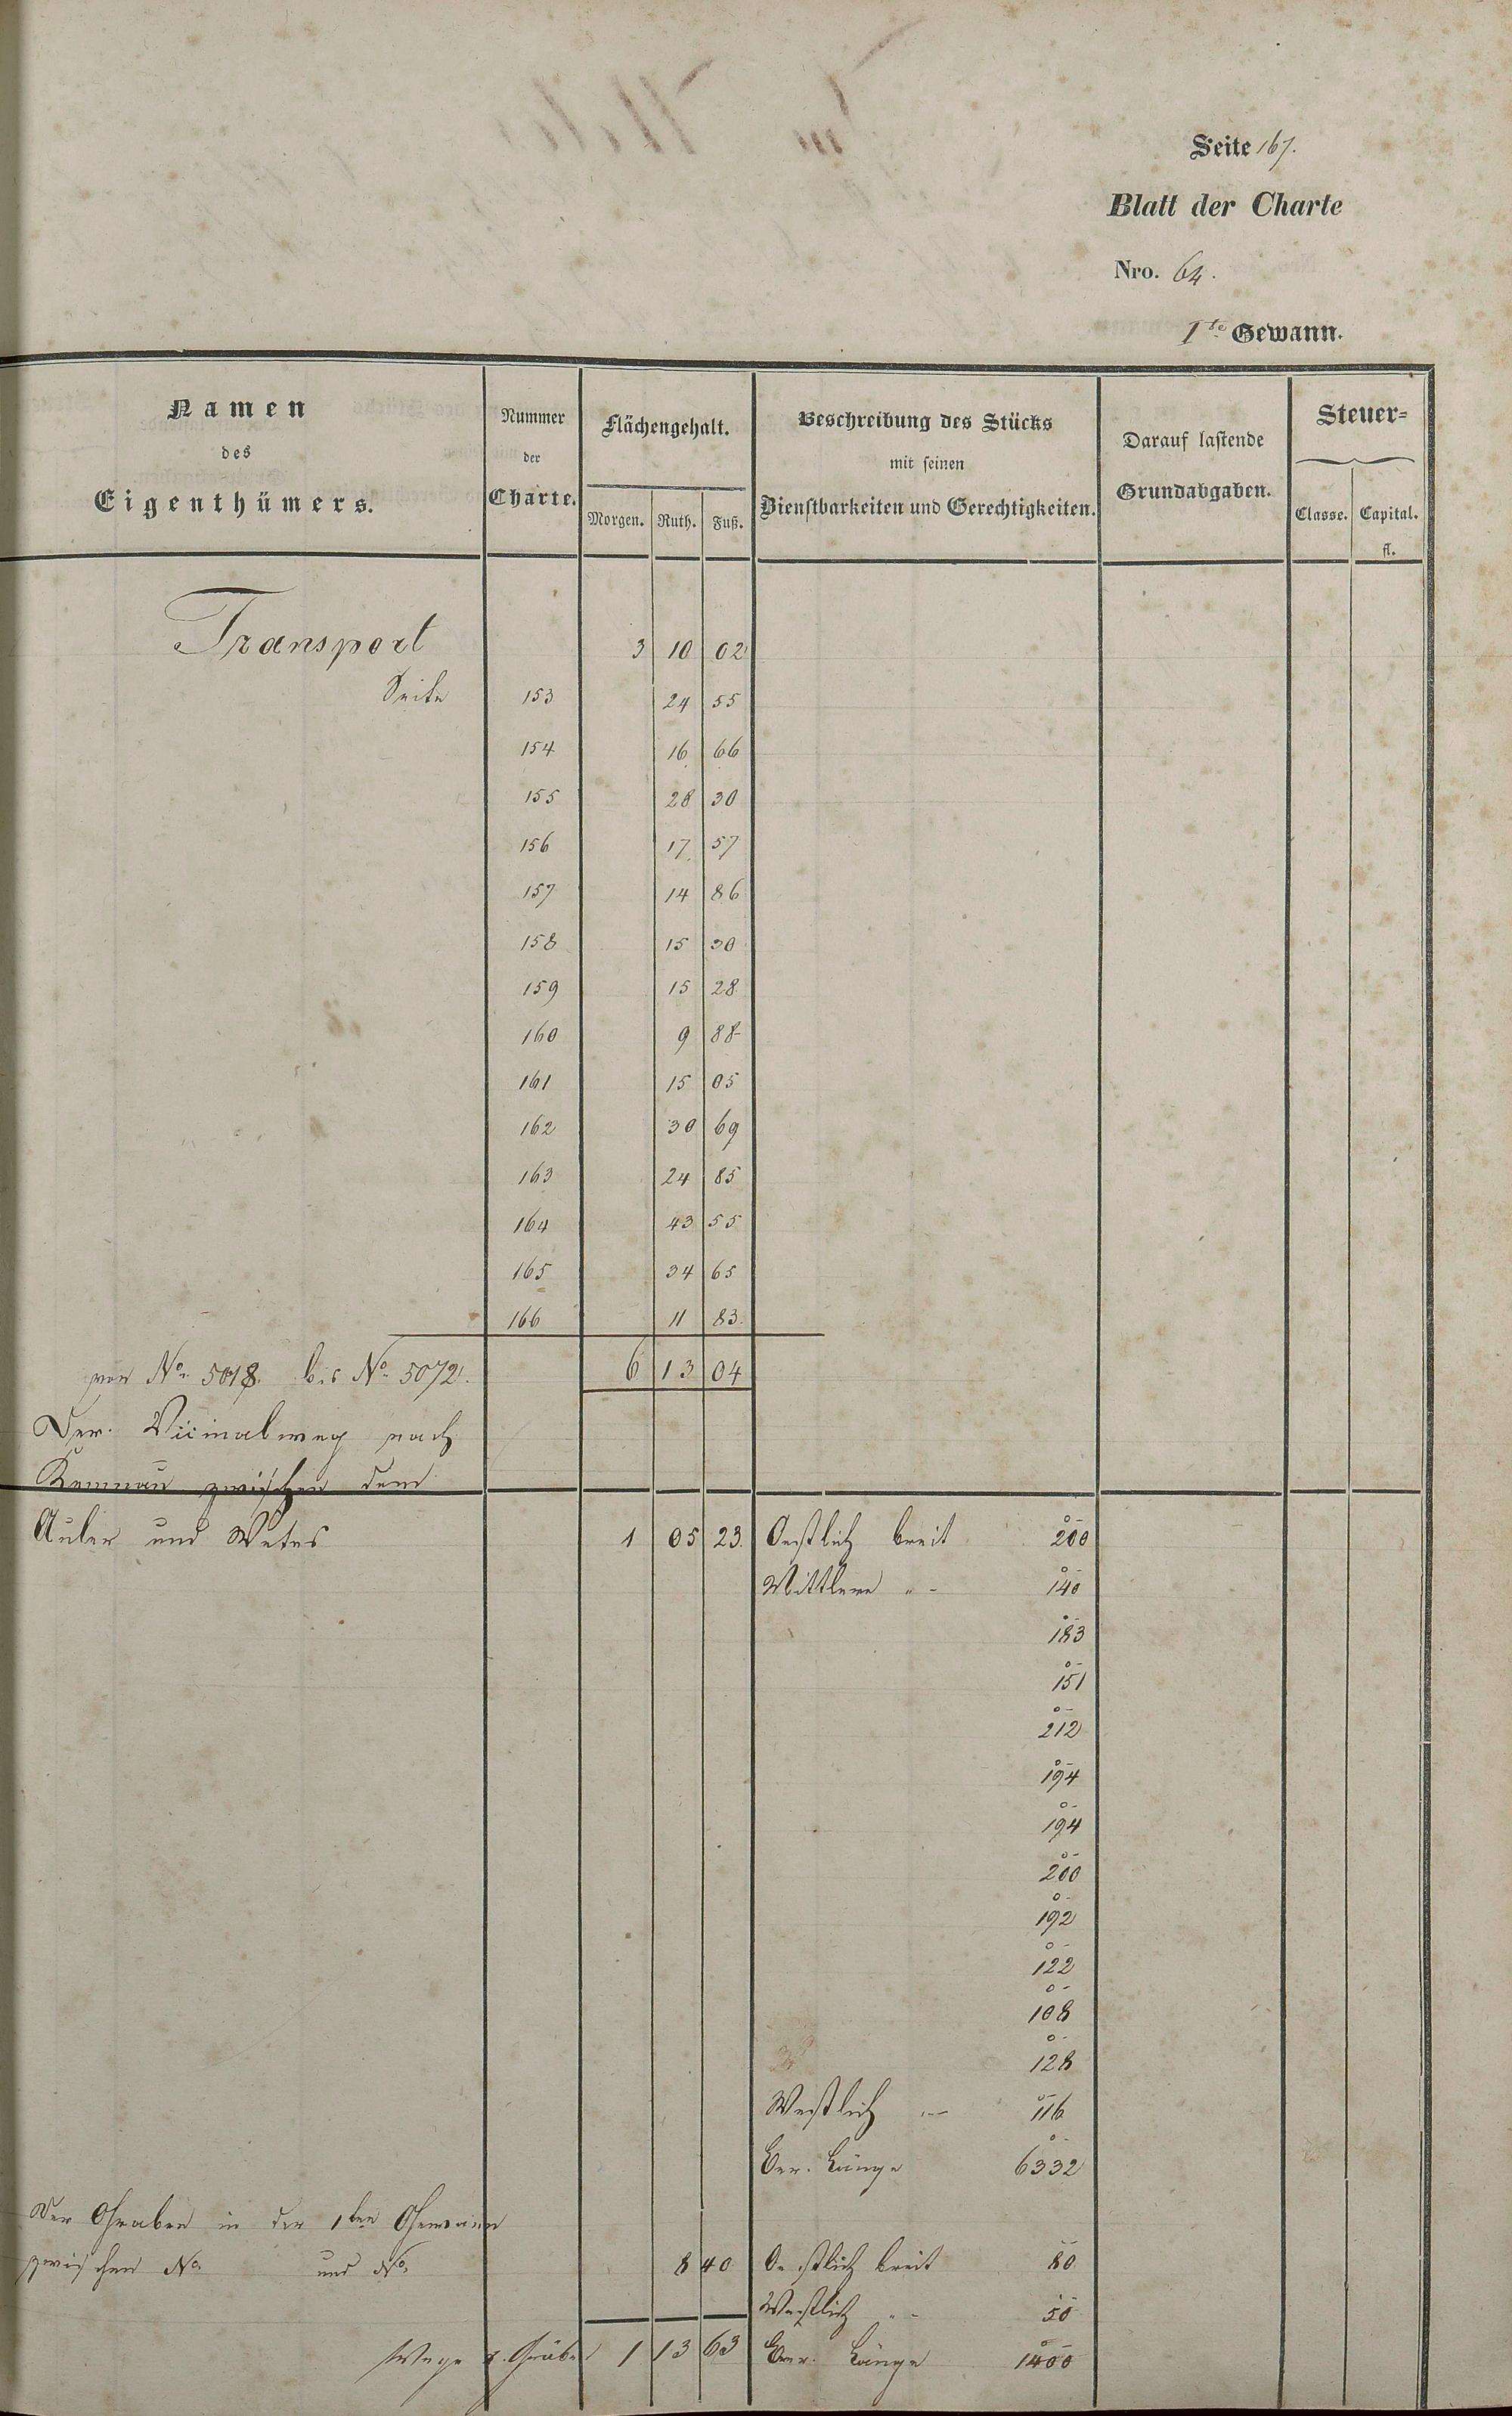 Seite 167.
Blatt der Charte
Nro. 64.
1te Gewann.
Namen des Eigenthümers. Nummer der Charte. Flächengehalt. Morgen. Ruth. Fuß. Beschreibung des Stücks mit seinen Dienstbarkeiten und Gerechtigkeiten. Darauf lastende Grundabgaben. Steuer= Classe. Capital. fl.
Transport 3 10 02
Seite 153 24 55
154 16 66
155 28 30
156 17 57
157 14 86
158 15 30
159 15 28
160 9 88
161 15 05
162 30 69
163 24 85
164 43 55
165 34 65
166 11 83.
von No. 5018. bis No. 5072. 6 13 04
Der Vicinalweg nach
Kemnau zwischen dem
Auler und Wetes 1 05 23. Oestlich breit 200
Mittlere " - 140
183
151
212
194
194
200
192
122
108
128
Westlich " - 116
Ver. Länge 6332
Der Graben in der 1ten Gewann
zwischen No. und No. 8 40 Oestlich breit 80
Westlich " - 50
Wege u. Gräben 1 13 63 Ver. Länge 1400